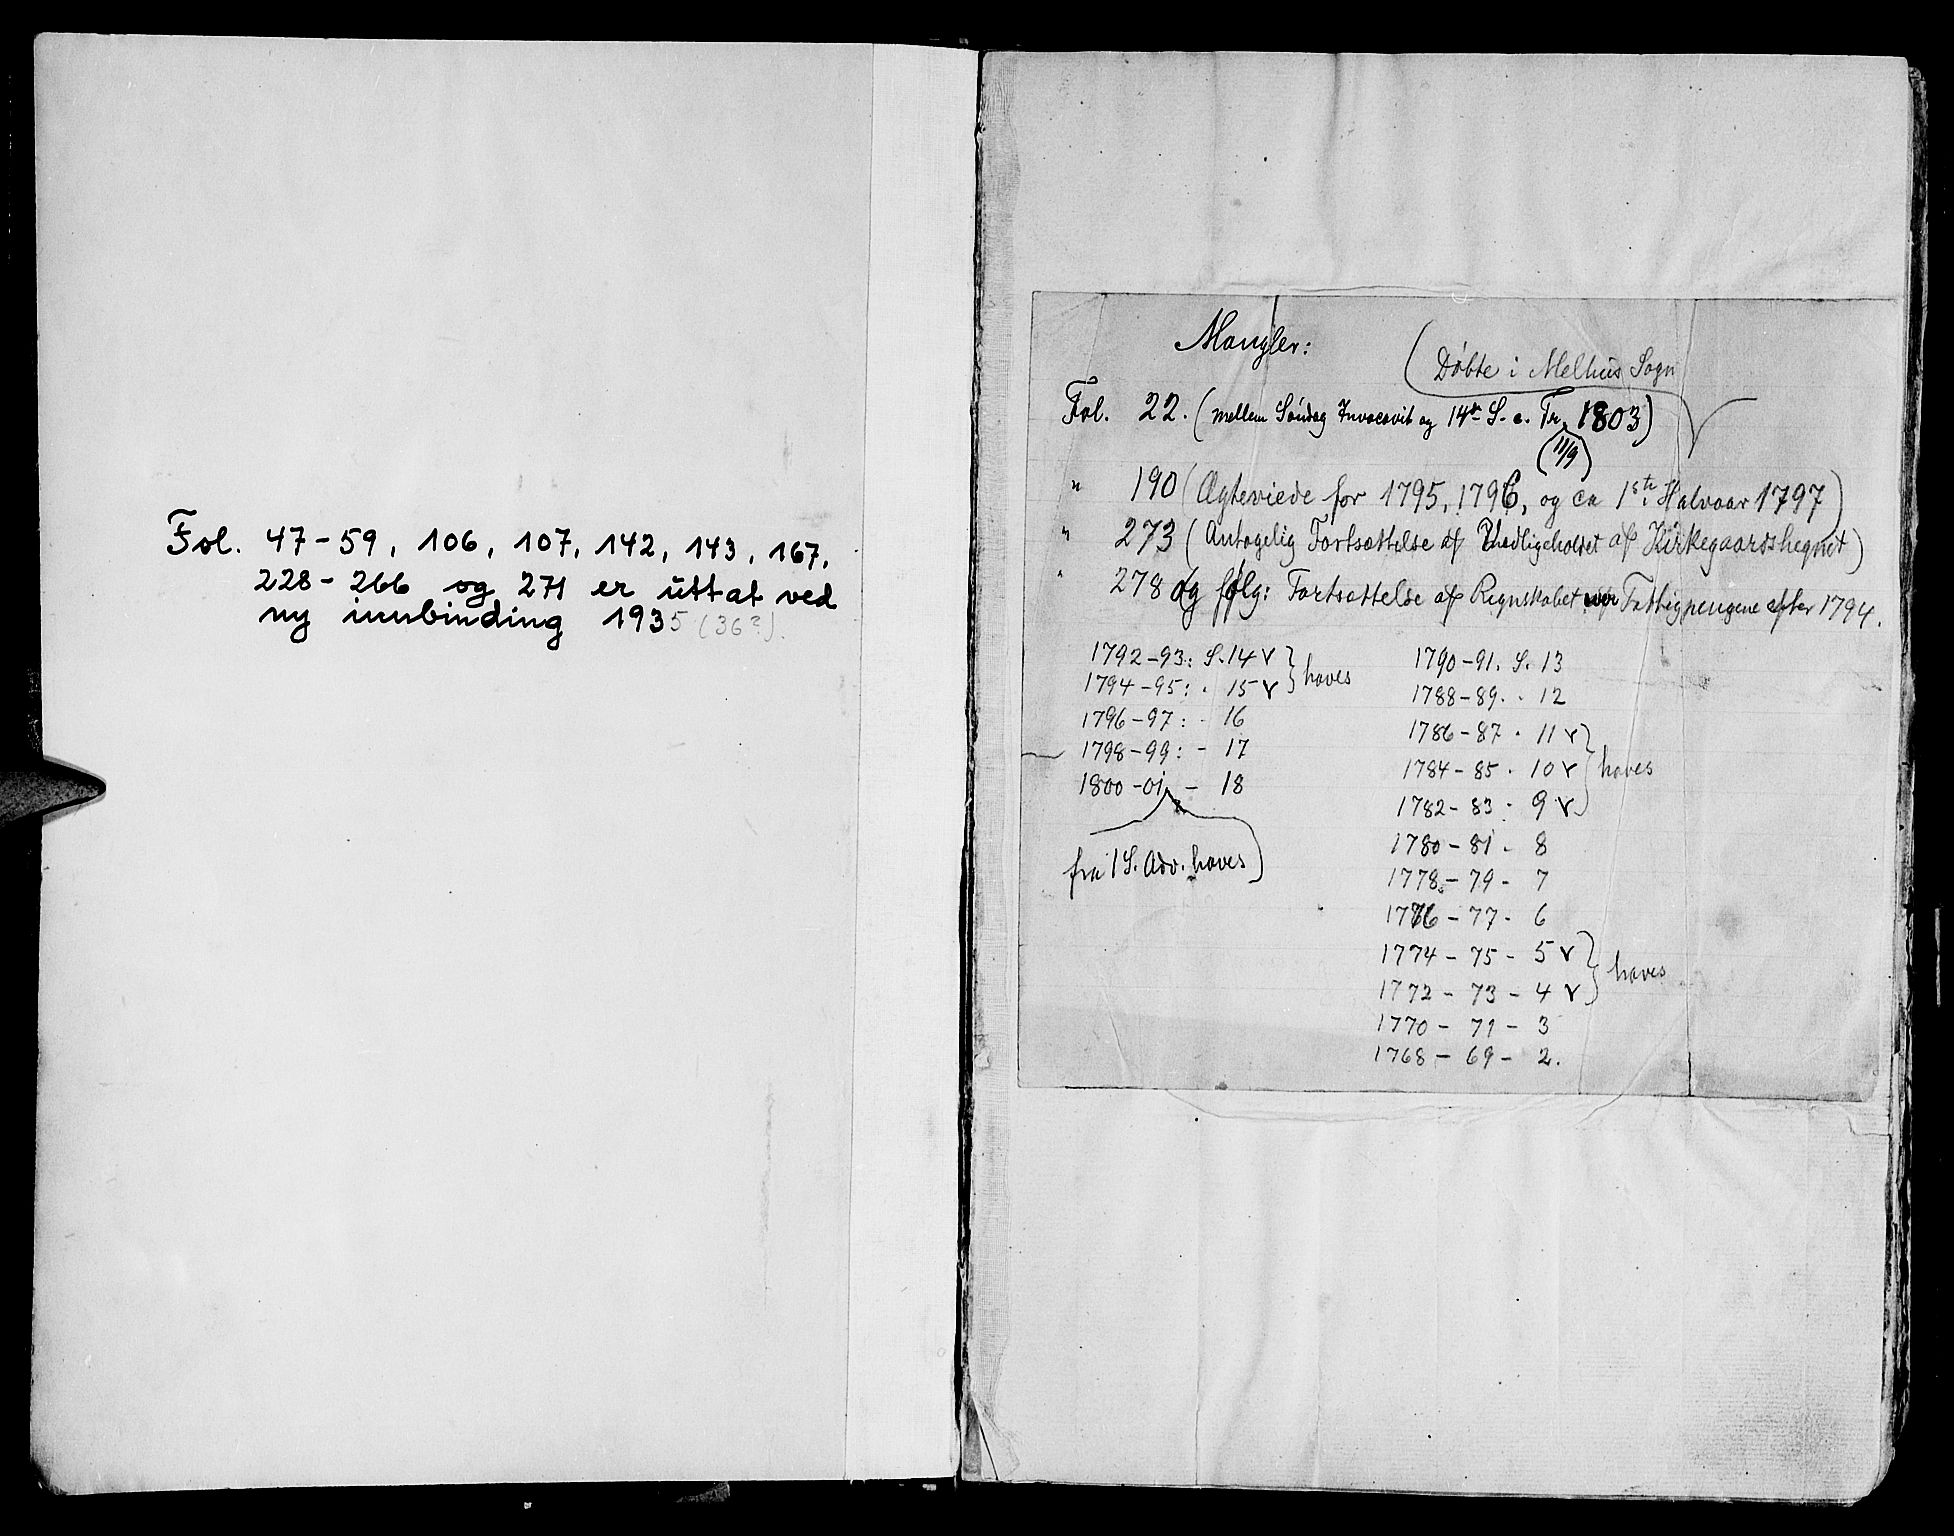 Fol. 47-59, 106, 107, 142, 143, 167,
228-266 og 271 er uttat ved
ny innbinding 1935 (36?).
Mangler:
(Døbte i Melhus Sogn
Fol. 22. (mellem Søndag Invocavit og 14de S. e. Tr. 1803)
(11/9)
" 190 (Ægteviede for 1795, 1796, og ca 1ste Halvaar 1797)
" 273 (Antagelig Fortsættelse af Vedligeholdet af Kirkegaardshegnet)
" 278 og følg: Fortsættelse af Regnskabet over Fattigpengene efter 1794.
1792-93: S. 14 v } haves
1794-95: - 15 v
1796-97: - 16
1798-99: - 17
1800-01 - 18
fra 1 S. Adv. haves)
1790-91. S. 13
1788-89. - 12
1786-87 - 11 v
1784-85 - 10 v } haves
1782-83 - 9 v
1780-81 - 8
1778-79 - 7
1776-77 - 6
1774-75 - 5 v } haves
1772-73 - 4 v
1770-71 - 3
1768-69 - 2.